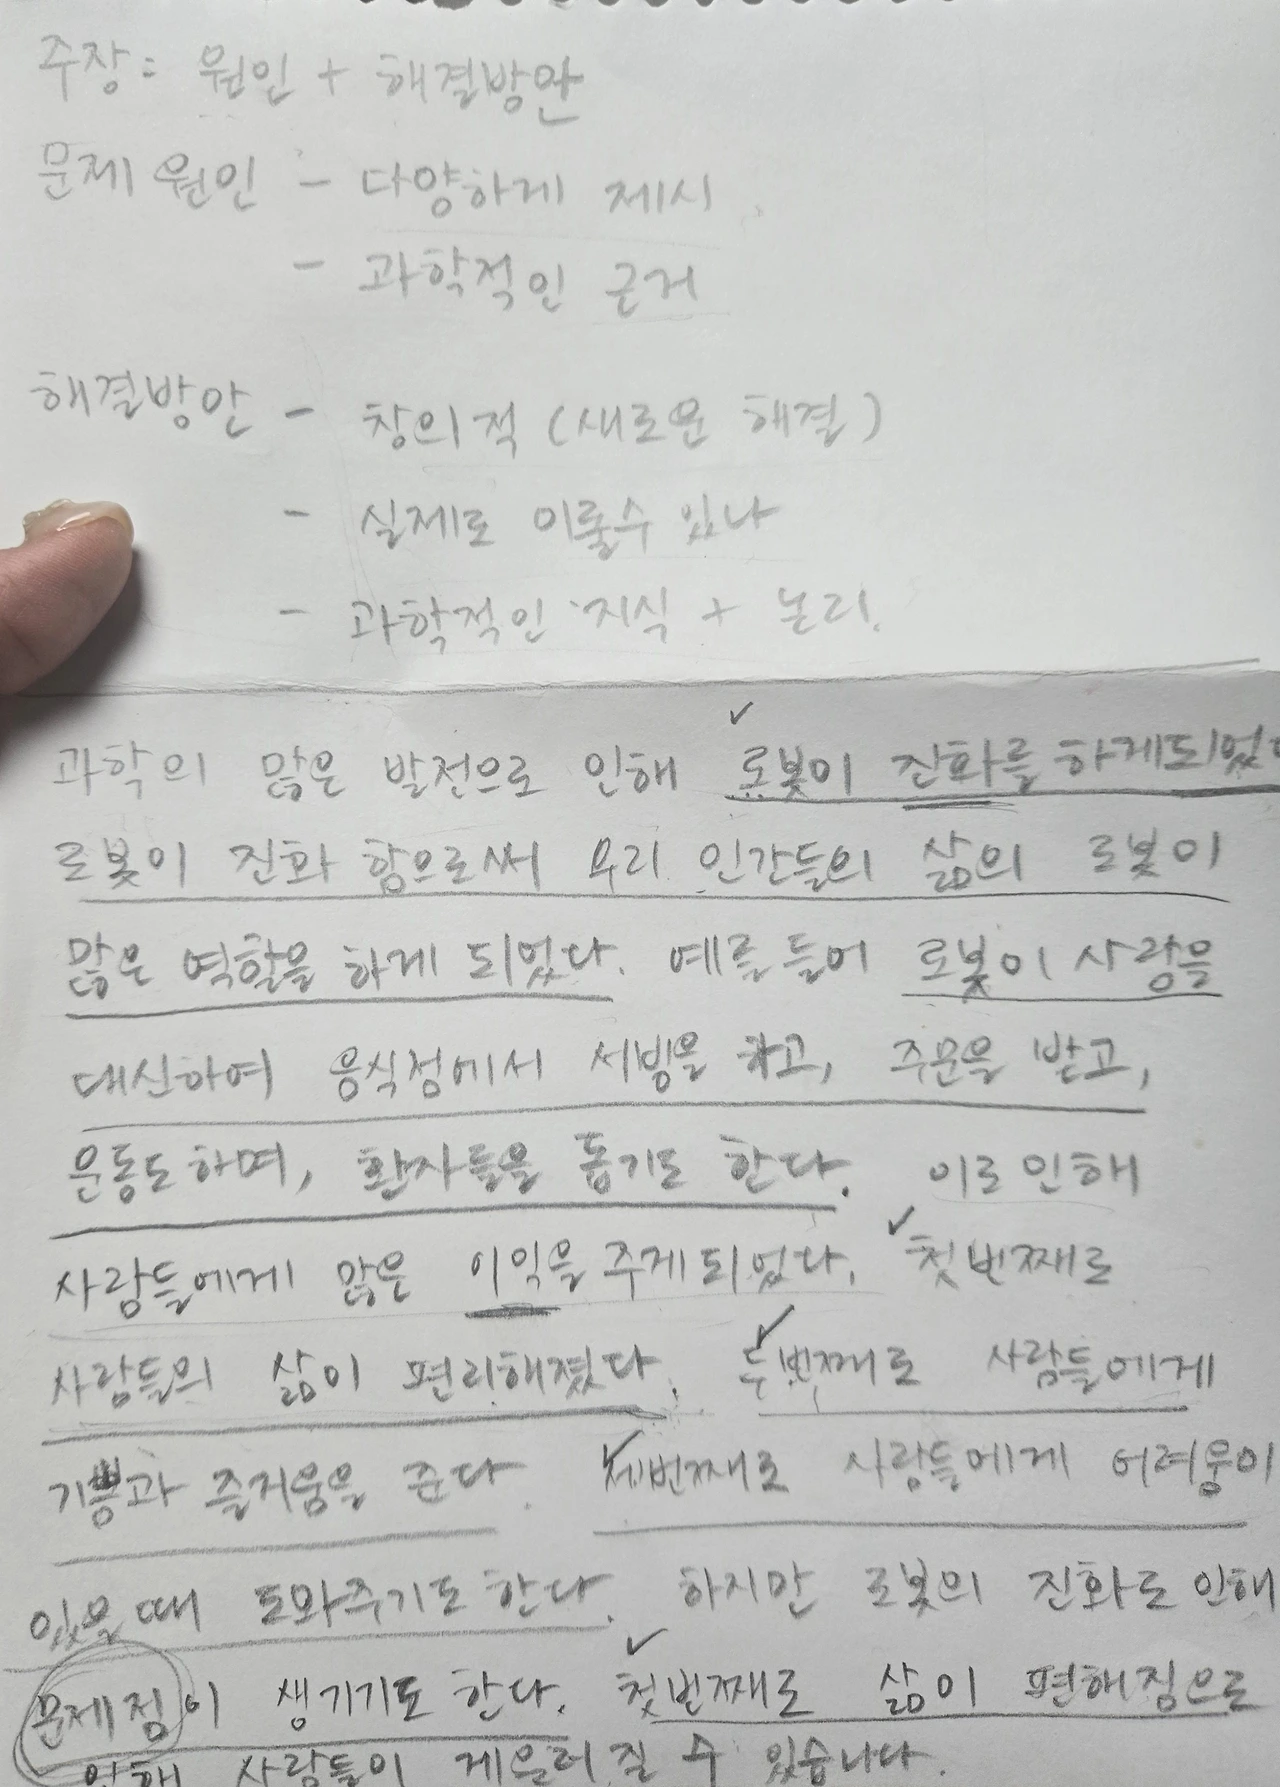 주장: 원인 + 해결방안
문제 원인 - 다양하게 제시
- 과학적인 근거
해결방안 - 창의적 (새로운 해결)
- 실제로 이룰수 있나
- 과학적인 지식 + 논리.
과학의 많은 발전으로 인해 로봇이 진화를 하게되었다
로봇이 진화 함으로써 우리 인간들의 삶의 로봇이
많은 역할을 하게 되었다. 예를 들어 로봇이 사람을
대신하여 음식점에서 서빙을 하고, 주문을 받고,
운동도하며, 환자들을 돕기도 한다. 이로 인해
사람들에게 많은 이익을 주게되었다. 첫번째로
사람들의 삶이 편리해졌다. 두번째로 사람들에게
기쁨과 즐거움을 준다. 세번째로 사람들에게 어려움이
있을때 도와주기도 한다. 하지만 로봇의 진화로 인해
문제점이 생기기도 한다. 첫번째로 삶이 편해짐으로
인해 사람들이 게을러질 수 있습니다.